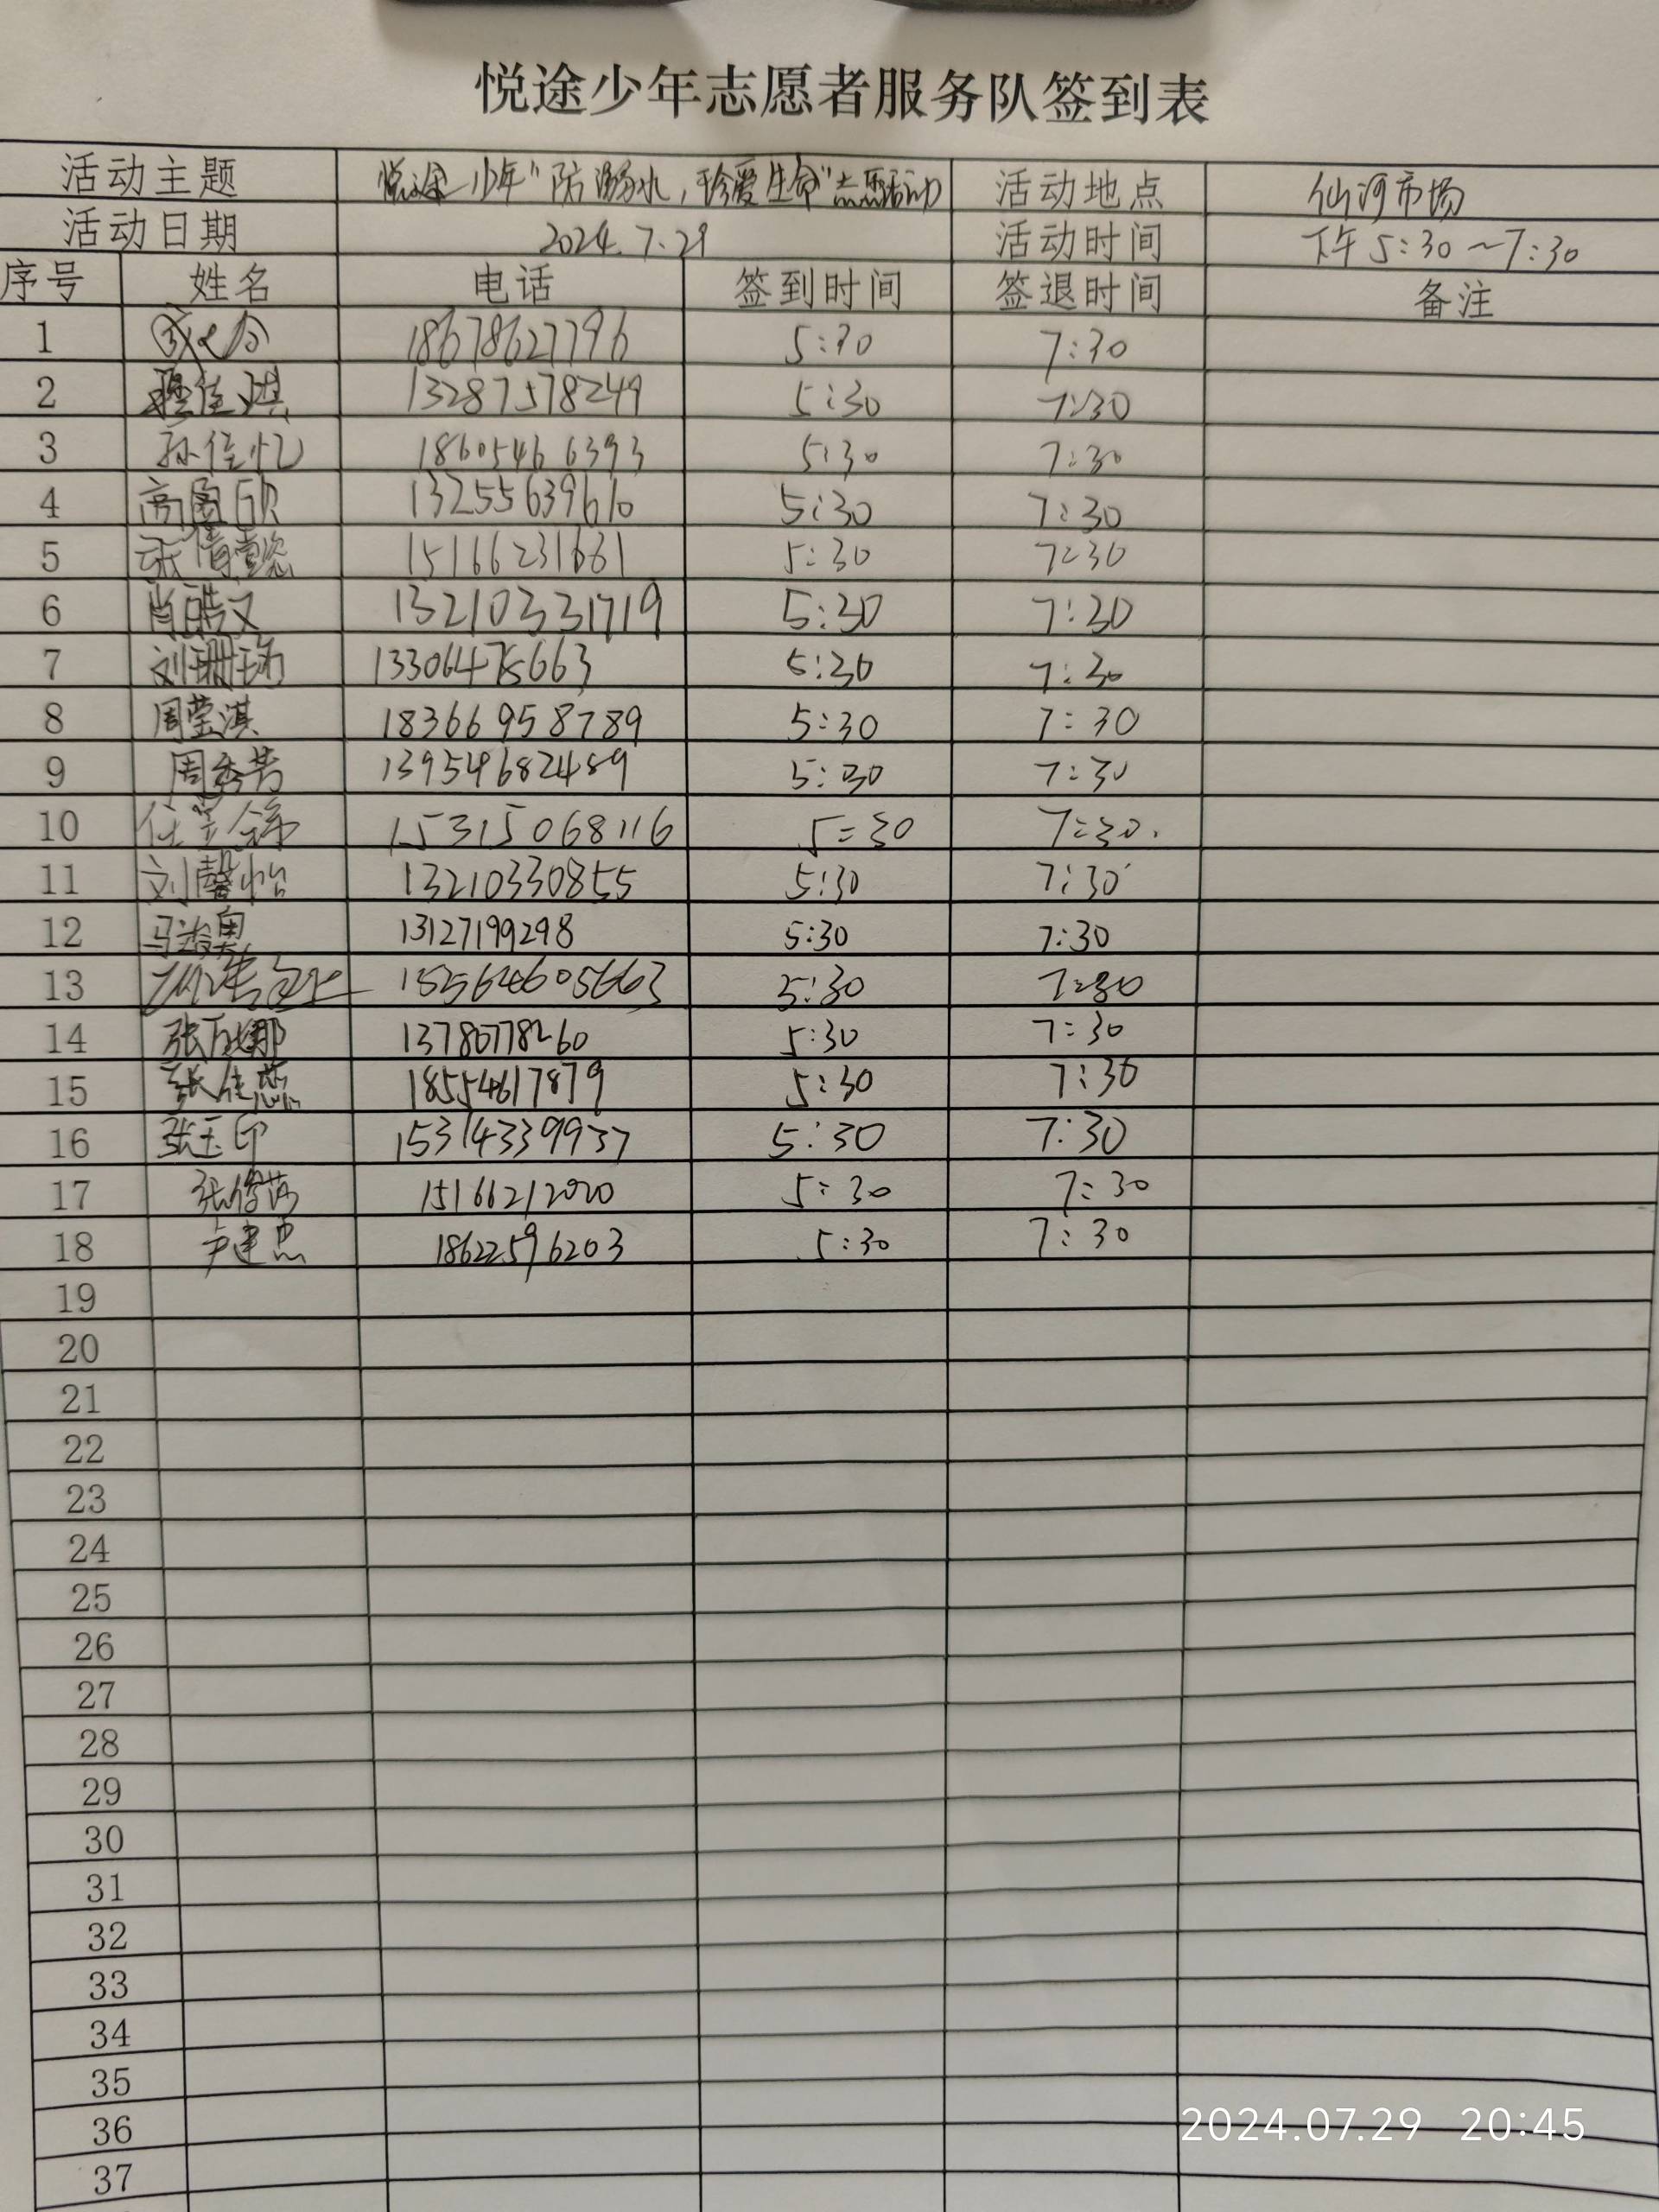 悦途少年志愿者服务队签到表
活动主题 悦途少年“防溺水,珍爱生命”志愿活动 活动地点 仙河市场
活动日期 2024.7.29 活动时间 下午5:30~7:30
序号 姓名 电话 签到时间 签退时间 备注
1 18678627796 5:30 7:30
2 13287578249 5:30 7:30
3 孙佳忆 18605466393 5:30 7:30
4 13255639610 5:30 7:30
5 5:30 7:30
6 肖皓文 13210331719 5:30 7:30
7 刘珊瑞 5:30 7:30
8 周莹淇 18366958789 5:30 7:30
9 周秀芳 13954682489 5:30 7:30
10 15315068116 5=30 7=30.
11 刘馨怡 13210330855 5:30 7:30
12 13127199298 5:30 7:30
13 5:30 7:30
14 13780778260 5:30 7:30
15 18554617879 5:30 7:30
16 张玉印 15314339937 5:30 7:30
17 15166212020 5:30 7:30
18 18622596203 5:30 7:30
19
20
21
22
23
24
25
26
27
28
29
30
31
32
33
34
35
36
37
2024.07.29 20:45